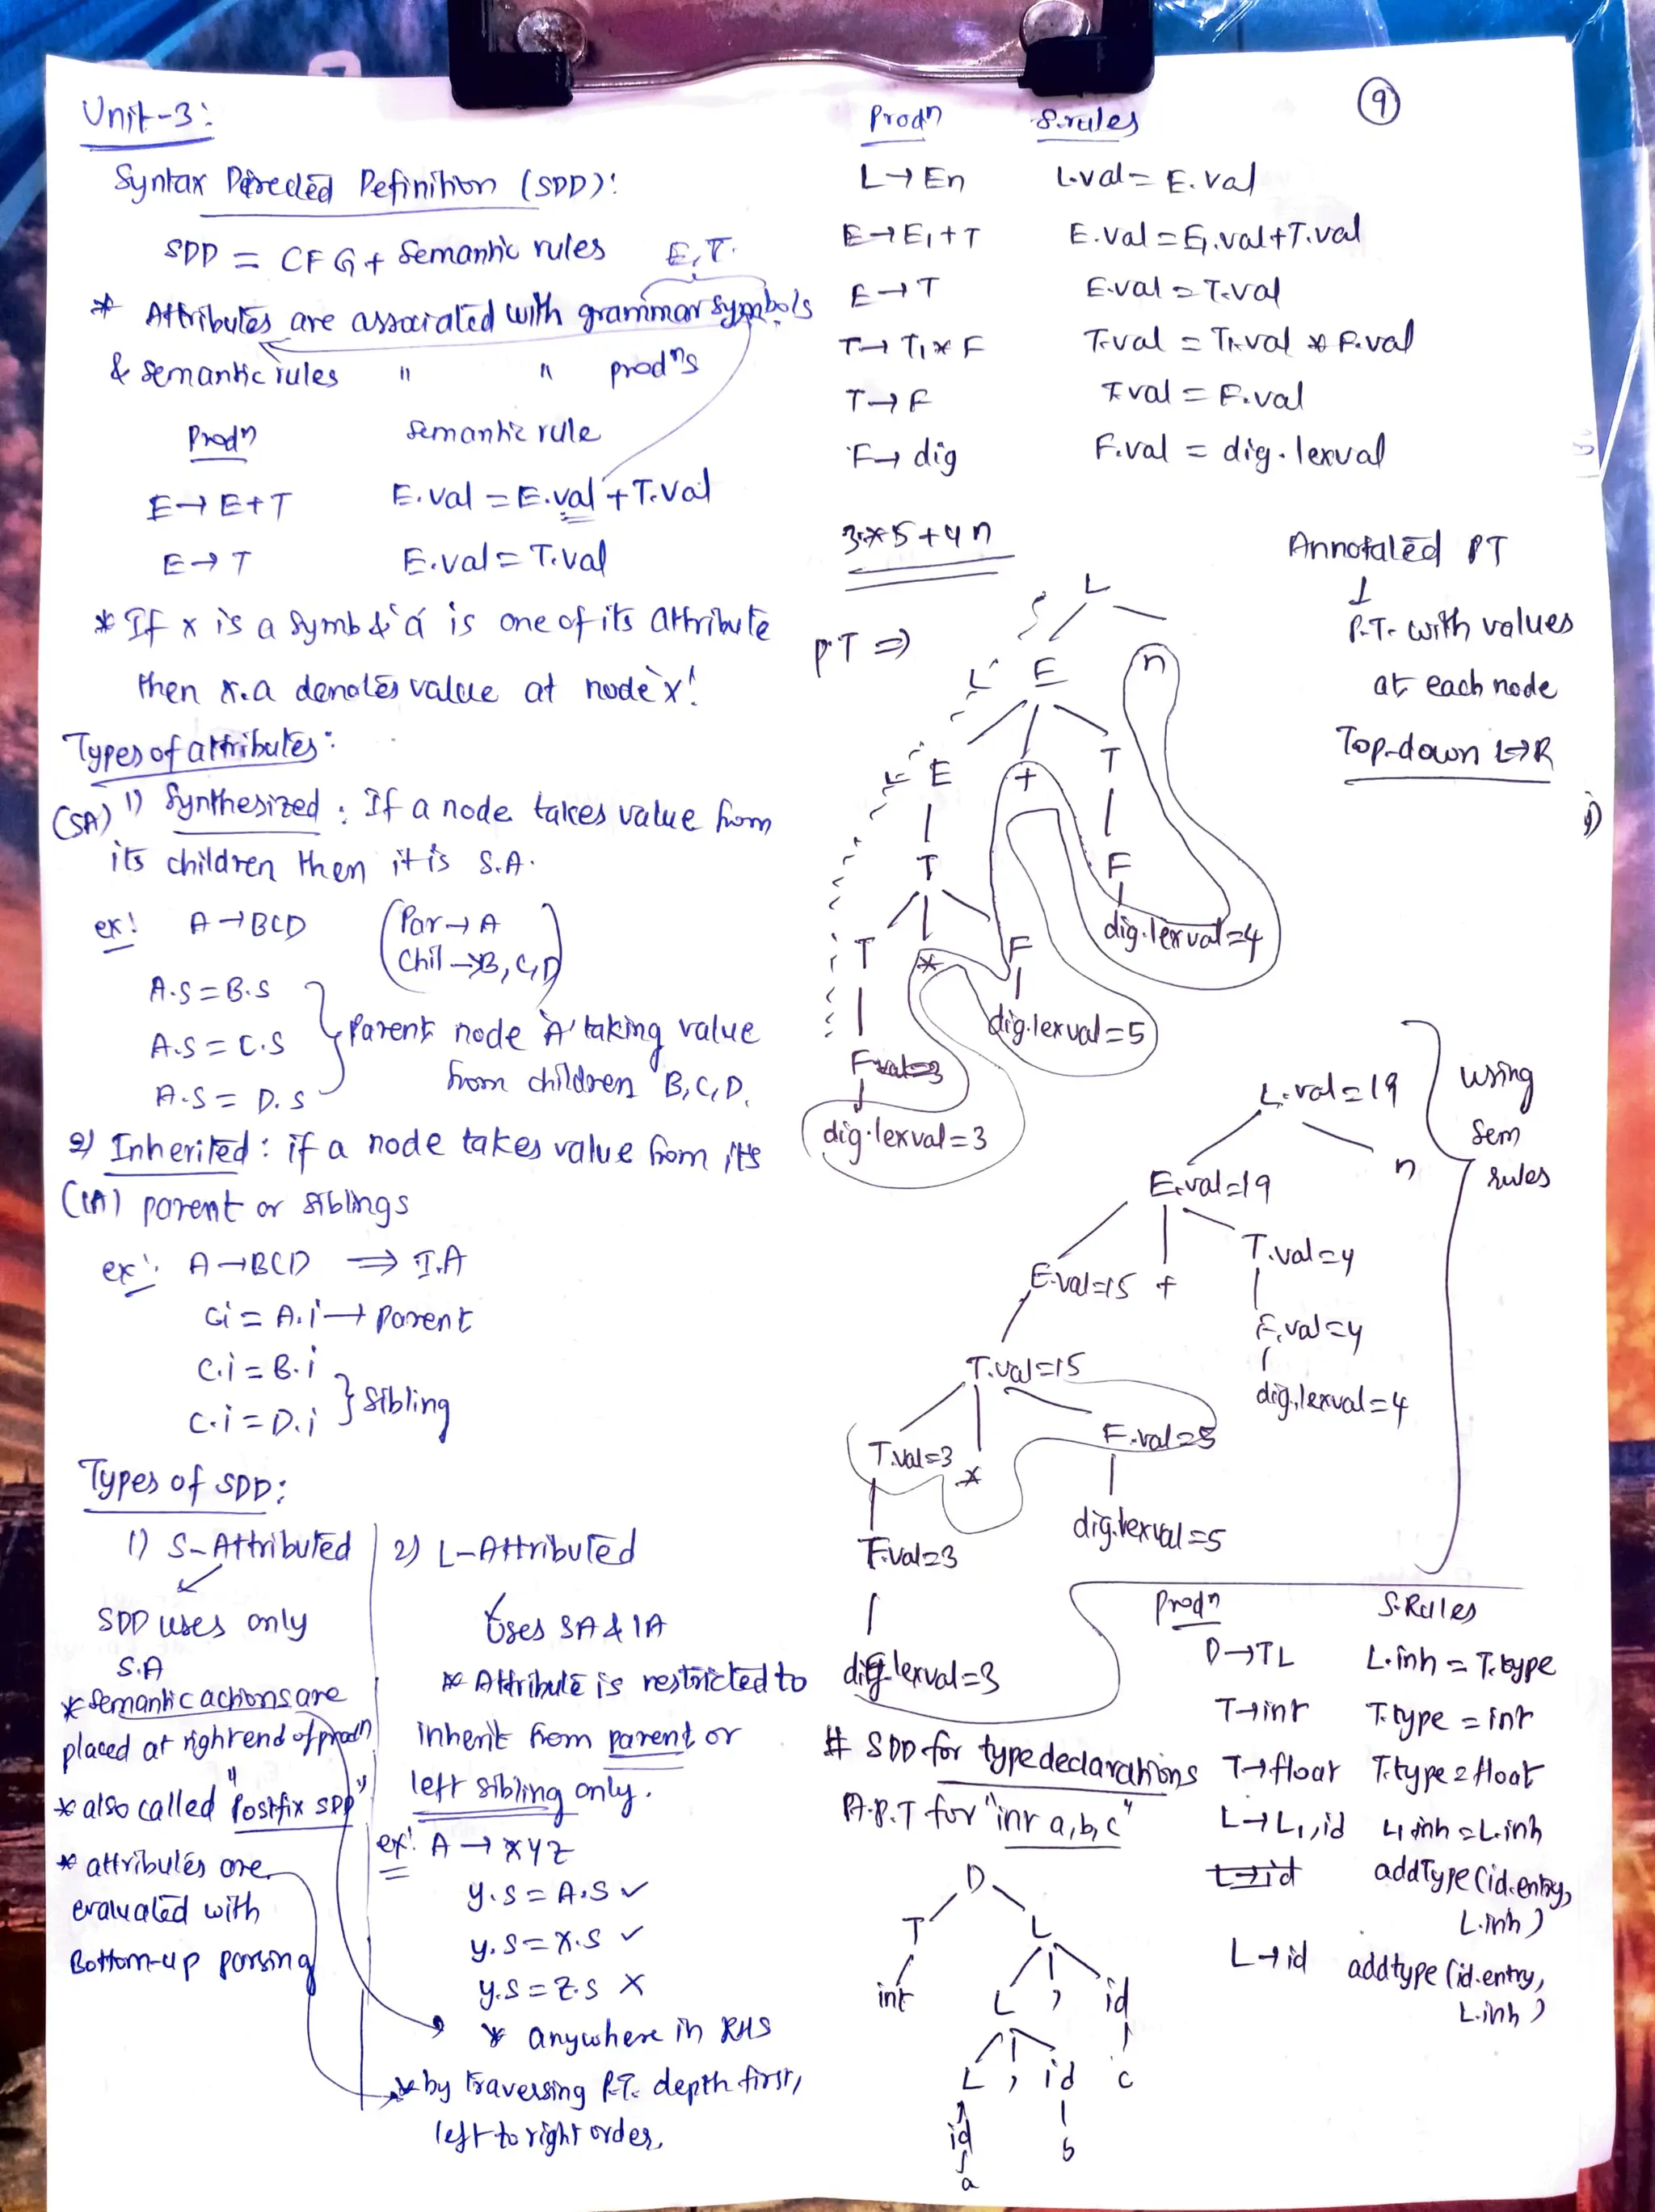 Unit-3:
Syntax Directed Definition (SDD):
SDD = CFG + Semantic rules
E, T.
* Attributes are associated with grammar symbols
& semantic rules " " prodns
Prodn Semantic rule
E → E+T E.val = E.val + T.val
E → T E.val = T.val
* If x is a symb & 'a' is one of its attribute
then x.a denotes value at node 'x'.
Types of attributes:
(SA) 1) Synthesized: If a node takes value from
its children then it is S.A.
ex: A → BCD (Par → A
Chil → B, C, D)
A.S = B.S
A.S = C.S
A.S = D.S
Parent node 'A' taking value
from children B, C, D.
2) Inherited: if a node takes value from its
(IA) parent or siblings
ex: A → BCD ⇒ I.A
C.i = A.i → Parent
C.i = B.i
C.i = D.i } Sibling
Types of SDD:
1) S-Attributed
SDD uses only
S.A
* Semantic actions are
placed at right end of prodn
* also called "Postfix SDD"
* attributes are
evaluated with
Bottom-up parsing
2) L-Attributed
Uses SA & IA
* Attribute is restricted to
inherit from parent or
left sibling only.
ex: A → XYZ
Y.S = A.S ✓
Y.S = X.S ✓
Y.S = Z.S X
* anywhere in RHS
* by traversing P.T. depth first,
left to right order.
9
Prodn S.rules
L → En L.val = E.val
E → E1 + T E.val = E1.val + T.val
E → T E.val = T.val
T → T1 * F T.val = T1.val * F.val
T → F T.val = F.val
F → dig F.val = dig.lexval
3*5+4n
Annotated PT
↓
P.T. with values
at each node
Top-down L→R
PT ⇒
L
E n
E + T
T F
T * F dig.lexval=4
F dig.lexval=5
dig.lexval=3
L.val=19
E.val=19 n
E.val=15 + T.val=4
T.val=15 F.val=4
dig.lexval=4
T.val=3 * F.val=5
F.val=3 dig.lexval=5
dig.lexval=3
using
sem
rules
Prodn S.Rules
D → TL L.inh = T.type
T → int T.type = int
T → float T.type = float
L → L1, id L1.inh = L.inh
addType(id.entry,
L.inh)
L → id addtype(id.entry,
L.inh)
# SDD for type declarations
A.P.T for "int a,b,c"
D
T L
int L , id
L , id c
id b
a